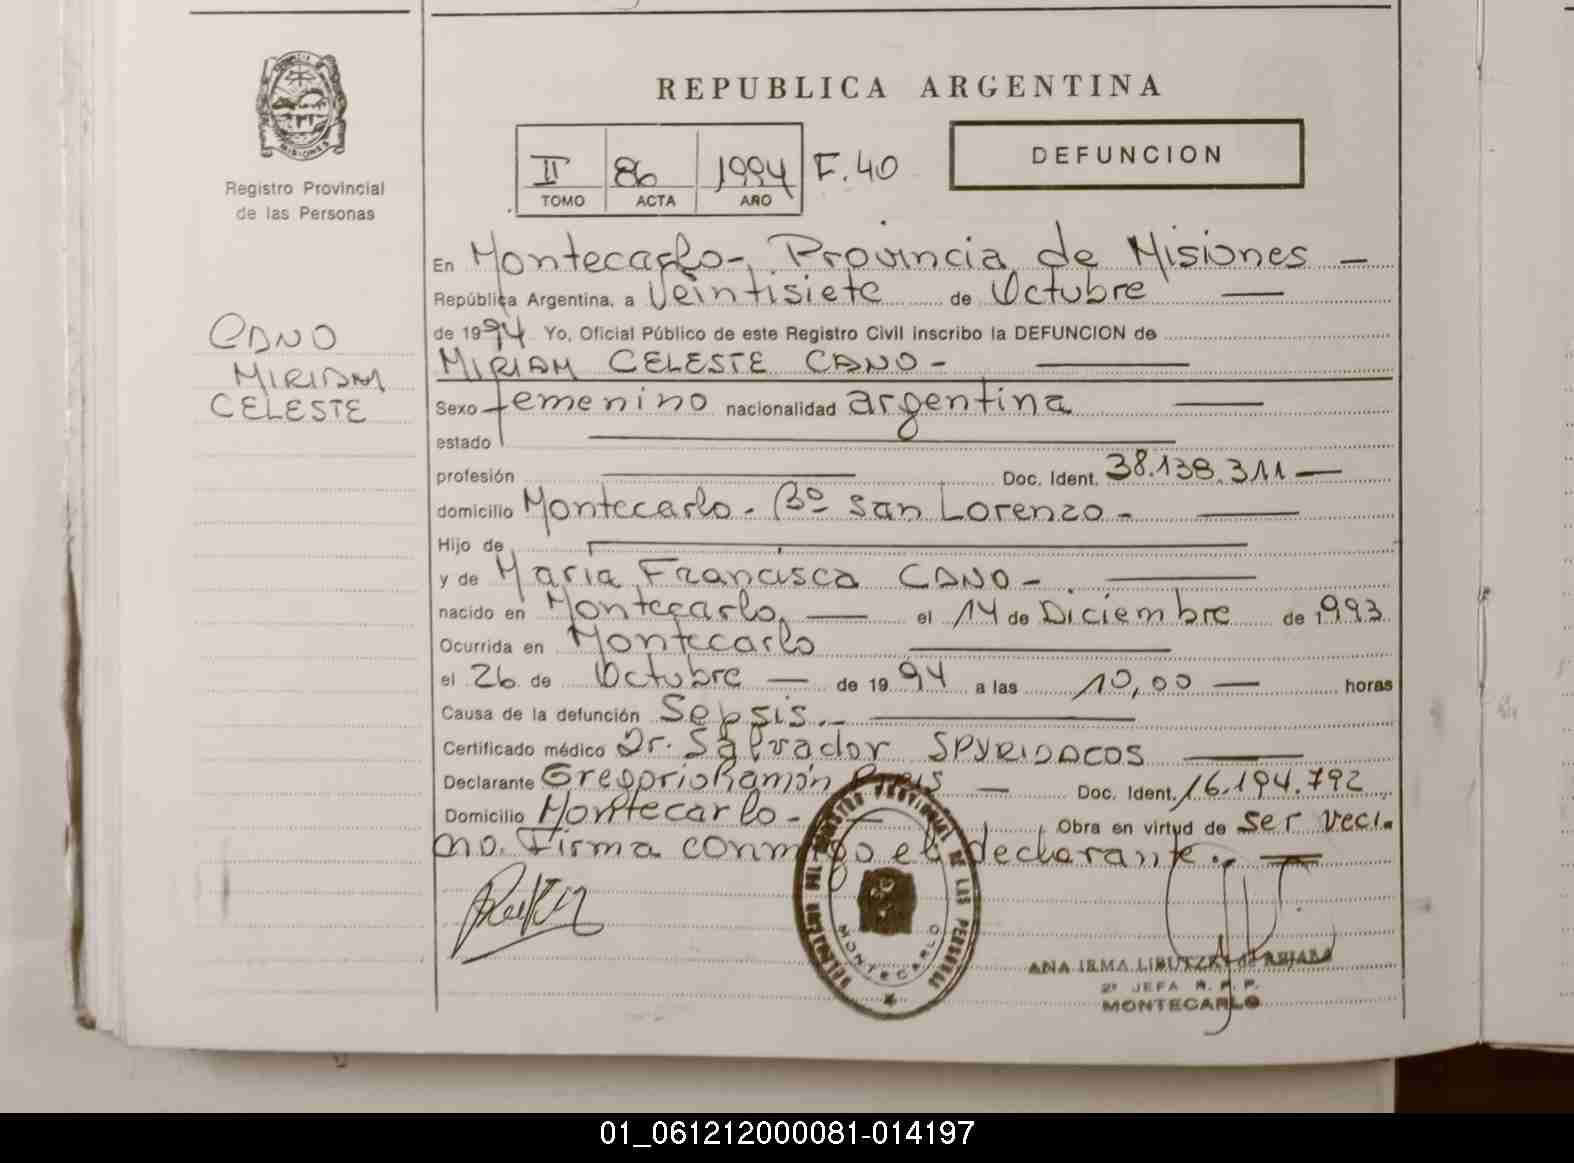 REPUBLICA ARGENTINA
PROVINCIA DE MISIONES
Registro Provincial
de las Personas
II 86 1994 F.40
TOMO ACTA AÑO
DEFUNCION
CANO
MIRIAM
CELESTE
En Montecarlo-, Provincia de Misiones —
República Argentina, a Veintisiete de Octubre —
de 1994 Yo, Oficial Público de este Registro Civil inscribo la DEFUNCION de
MIRIAM CELESTE CANO- —
Sexo femenino nacionalidad argentina —
estado —
profesión — Doc. Ident. 38.138.311 —
domicilio Montecarlo - Bº San Lorenzo - —
Hijo de —
y de Maria Francisca CANO - —
nacido en Montecarlo, — el 14 de Diciembre de 1993
Ocurrida en Montecarlo —
el 26 de Octubre — de 1994 a las 10,00 — horas
Causa de la defunción Sepsis.- —
Certificado médico Dr. Salvador SPYRIDACOS —
Declarante Gregorio Ramón — Doc. Ident. 16.194.792
Domicilio Montecarlo - — Obra en virtud de ser veci-
no. Firma conmigo el declarante. —
REGISTRO PROVINCIAL DE LAS PERSONAS
MONTECARLO
ANA IRMA
2º JEFA R. P. P.
MONTECARLO
01_061212000081-014197